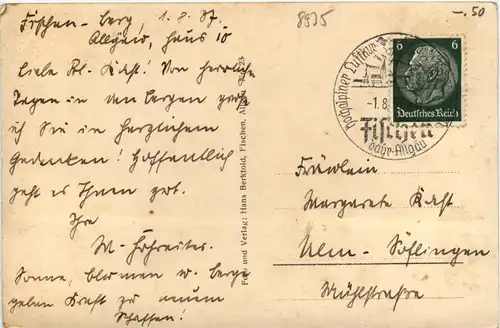 Fischen-Berg, 1.8.37.
Allgäu, Haus 10
Liebe Frl. Kast! Von herrlichen
Tagen in den Bergen grüße
ich Sie in herzlichem
Gedenken! Hoffentlich
geht es Ihnen gut.
Ihre
Sonne, Blumen u. Berge
geben Kraft zu neuem
Schaffen!
und Verlag: Hans Berktold, Fischen, Allg.
8935
-.50
Hochalpiner Luftkurort
-1.8.
Fischen
bayr. Allgäu
6 6
Deutsches Reich
Fräulein
Margarete Kast
Ulm-Söflingen
Mühlstraße